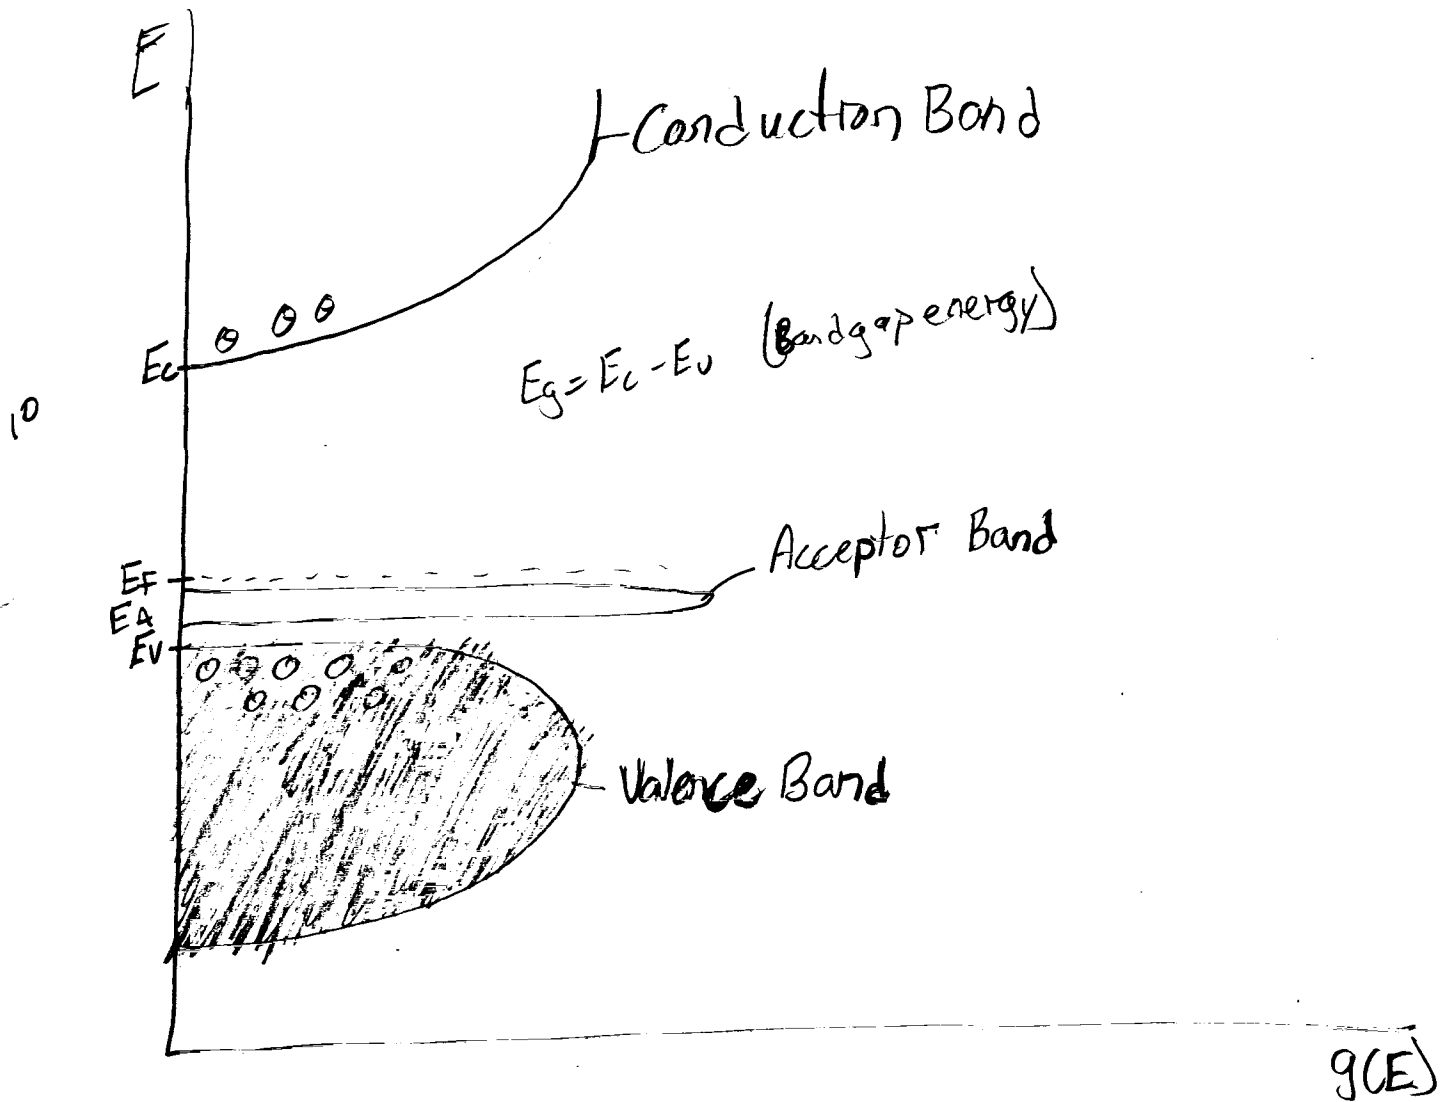 E
Conduction Band
Ec
Eg = Ec - Ev (Bandgap energy)
10
Acceptor Band
EF
EA
Ev
Valence Band
g(E)